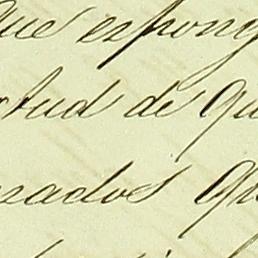 que espong
rtud de qu
rados qu